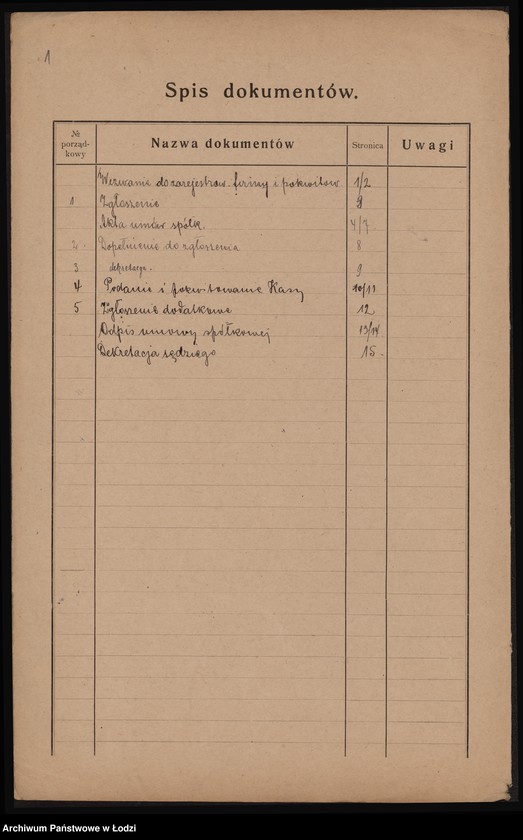 1
Spis dokumentów.
№ porząd-kowy Nazwa dokumentów Stronica Uwagi
Wezwanie do zarejestrow. firmy i pokwitow 1/2
1 Zgłoszenie 3
Akta umów spółk. 4/7
2. Dopełnienie do zgłoszenia 8
3 dekretacja. 9
4 Podanie i pokwitowanie Kasy 10/11
5 Zgłoszenie dodatkowe 12
Odpis umowy spółkowej 13/14
Dekretacja sędziego 15.
Archiwum Państwowe w Łodzi